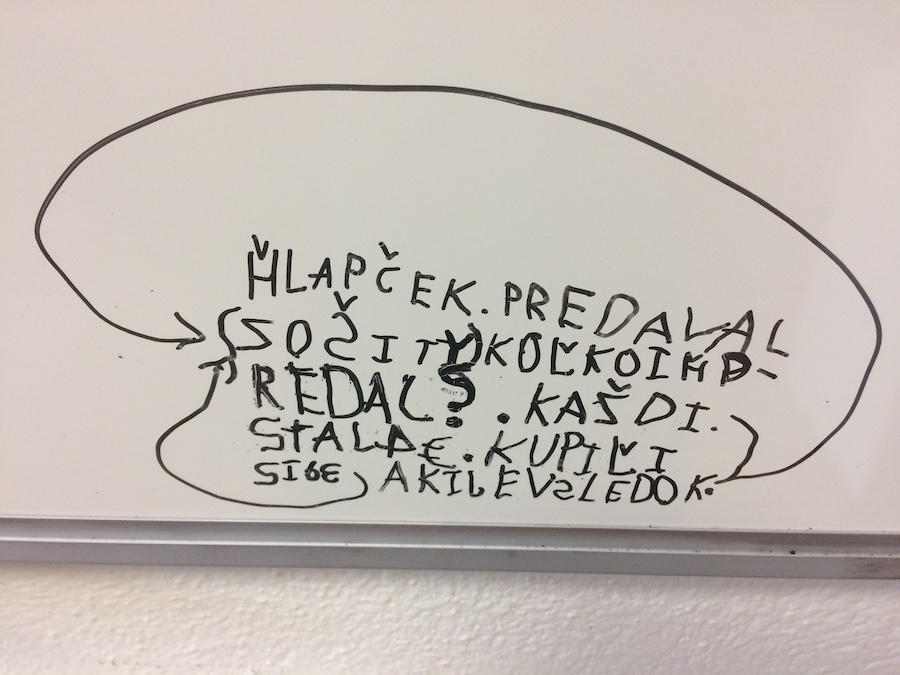 ȞLAPČEK. PREDAVAL
ZOŠITY KOĽKO IM P-
REDAL? . KAŠDI.
STAL DE. KUPIĽI
SI 9€ AKI JE VSLEDOK.